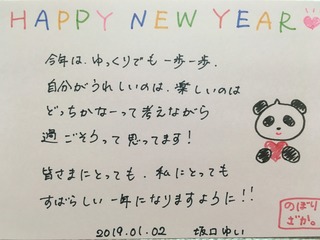 HAPPY NEW YEAR
今年は、ゆっくりでも一歩一歩、
自分がうれしいのは、楽しいのは
どっちかなーって考えながら
過ごそうって思ってます!
皆さまにとっても、私にとっても
すばらしい一年になりますように!!
のぼり
ざか。
2019.01.02 坂口ゆい